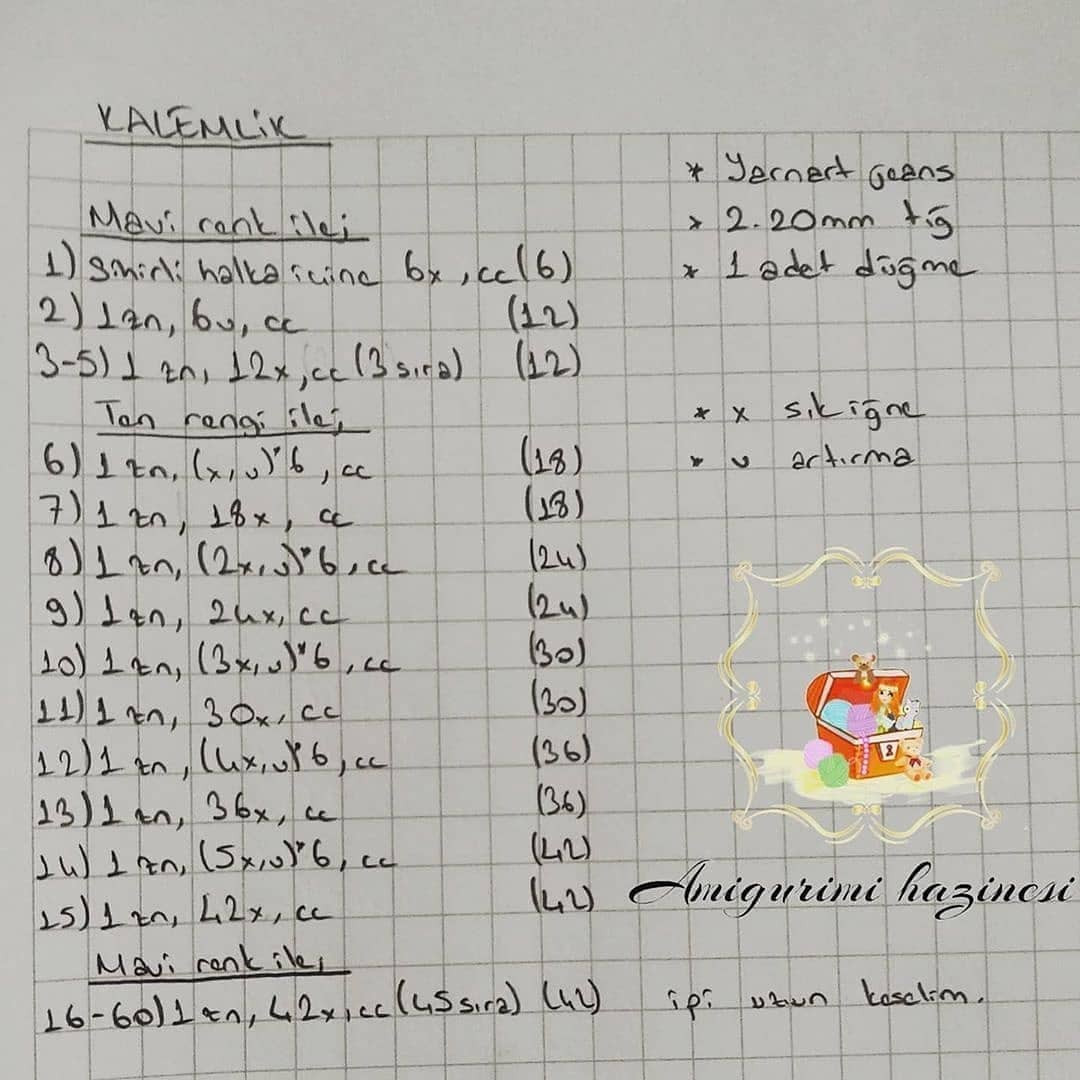 KALEMLİK
* Yarnart Jeans
* 2.20mm tığ
* 1 adet düğme
Mavi renk ile;
1) Sihirli halka içine 6x, cc (6)
2) 1zn, 6v, cc (12)
3-5) 1 zn, 12x, cc (3 sıra) (12)
Ten rengi ile;
* x sık iğne
* v artırma
6) 1 zn, (x, v)*6, cc (18)
7) 1 zn, 18x, cc (18)
8) 1 zn, (2x, v)*6, cc (24)
9) 1 zn, 24x, cc (24)
10) 1 zn, (3x, v)*6, cc (30)
11) 1 zn, 30x, cc (30)
12) 1 zn, (4x, v)*6, cc (36)
13) 1 zn, 36x, cc (36)
14) 1 zn, (5x, v)*6, cc (42)
15) 1 zn, 42x, cc (42)
Amigurimi hazinesi
Mavi renk ile;
16-60) 1 zn, 42x, cc (45 sıra) (42) ipi uzun keselim.